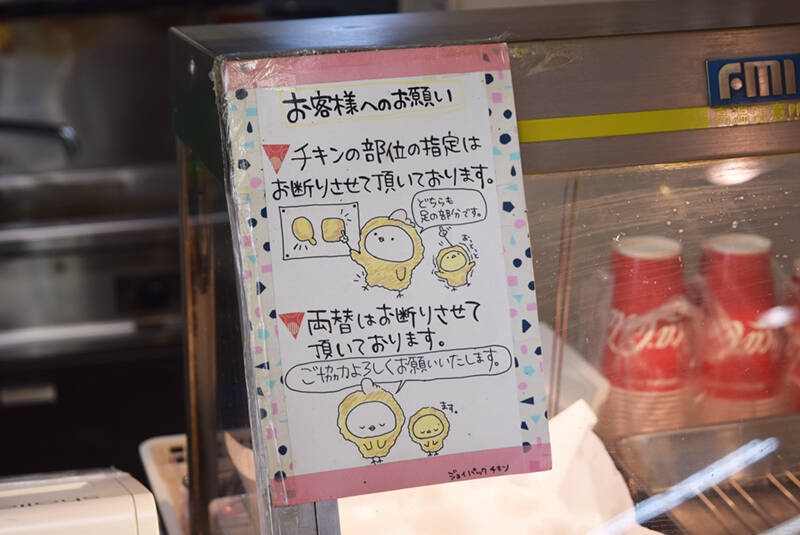 お客様へのお願い
チキンの部位の指定は
お断りさせて頂いております。
どちらも
足の部分です。
おっとっと
両替はお断りさせて
頂いております。
ご協力よろしくお願いいたします。
ます。
ジョイパックチキン
FMI